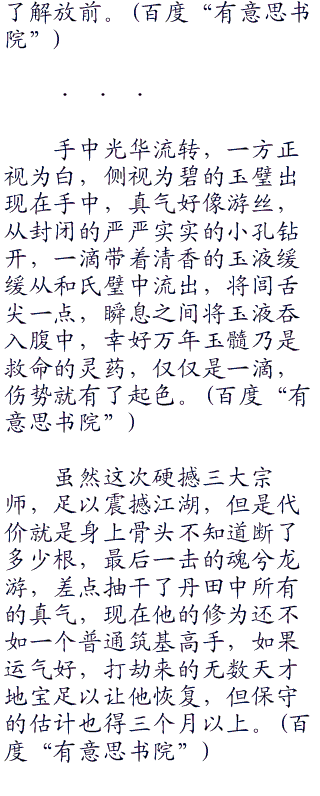 了解放前。（百度“有意思书
院”）
· · ·
手中光华流转，一方正
视为白，侧视为碧的玉璧出
现在手中，真气好像游丝，
从封闭的严严实实的小孔钻
开，一滴带着清香的玉液缓
缓从和氏璧中流出，将阎舌
尖一点，瞬息之间将玉液吞
入腹中，幸好万年玉髓乃是
救命的灵药，仅仅是一滴，
伤势就有了起色。（百度“有
意思书院”）
虽然这次硬撼三大宗
师，足以震撼江湖，但是代
价就是身上骨头不知道断了
多少根，最后一击的魂兮龙
游，差点抽干了丹田中所有
的真气，现在他的修为还不
如一个普通筑基高手，如果
运气好，打劫来的无数天才
地宝足以让他恢复，但保守
的估计也得三个月以上。（百
度“有意思书院”）